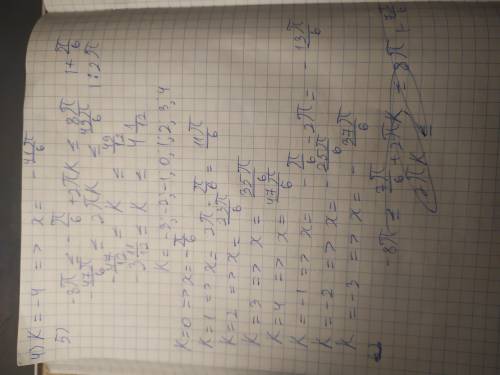 4) K = -4 => x = -
5) -8π ≤ -π/6 + 2πK ≤ 8π | + π/6
-47π/6 ≤ 2πK ≤ 49π/6 | : 2π
-47/12 ≤ K ≤ 49/12
-3 11/12 ≤ K ≤ 4 1/12
K = -3, -2, -1, 0, 1, 2, 3, 4
K = 0 => x = -π/6
K = 1 => x = 2π - π/6 = 11π/6
K = 2 => x = 23π/6
K = 3 => x = 35π/6
K = 4 => x = 47π/6
K = -1 => x = -π/6 - 2π = -13π/6
K = -2 => x = -25π/6
K = -3 => x = -37π/6
-8π ≤ 7π/6 + 2πK ≤ 8π | -
2πK ≤